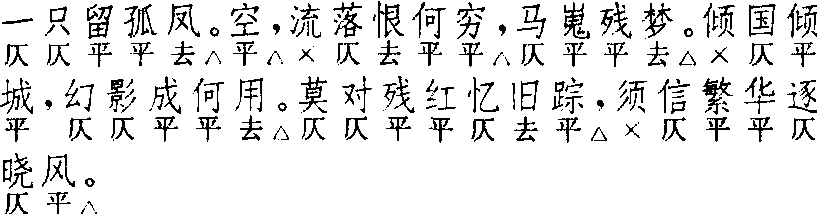 一只留孤凤。空,流落恨何穷,马嵬残梦。倾国倾
仄仄平平去△平△×仄去平平△仄平平去△×仄平
城,幻影成何用。莫对残红忆旧踪,须信繁华逐
平 仄仄平平去△仄仄平平仄去平△×仄平平仄
晓风。
仄平△